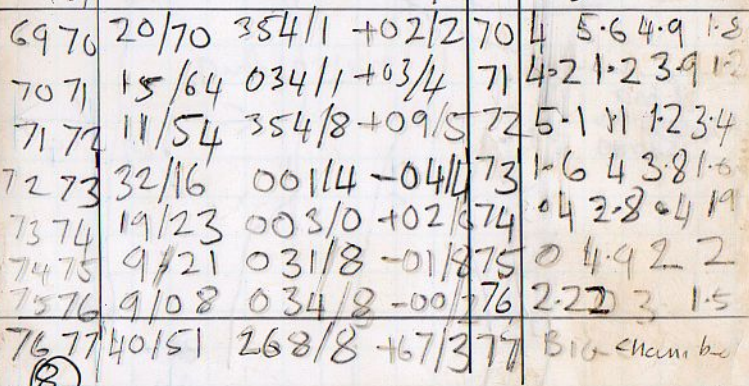 69 70 20/70 354/1 +02/2 70 4 5.6 4.9 1.8
70 71 15/64 034/1 +03/4 71 4.2 1.2 3.9 1.2
71 72 11/54 354/8 +09/5 72 5.1 1.1 1.2 3.4
72 73 32/16 001/4 -04/4 73 1.6 4 3.8
73 74 19/23 003/0 +02/6 74 .4 2.8 .4 19
74 75 9/21 031/8 -01/8 75 0 4.9 2 2
75 76 9/08 034/8 76 3 1.5
76 77 40/51 268/8 +67/3 77 Big chamber
8